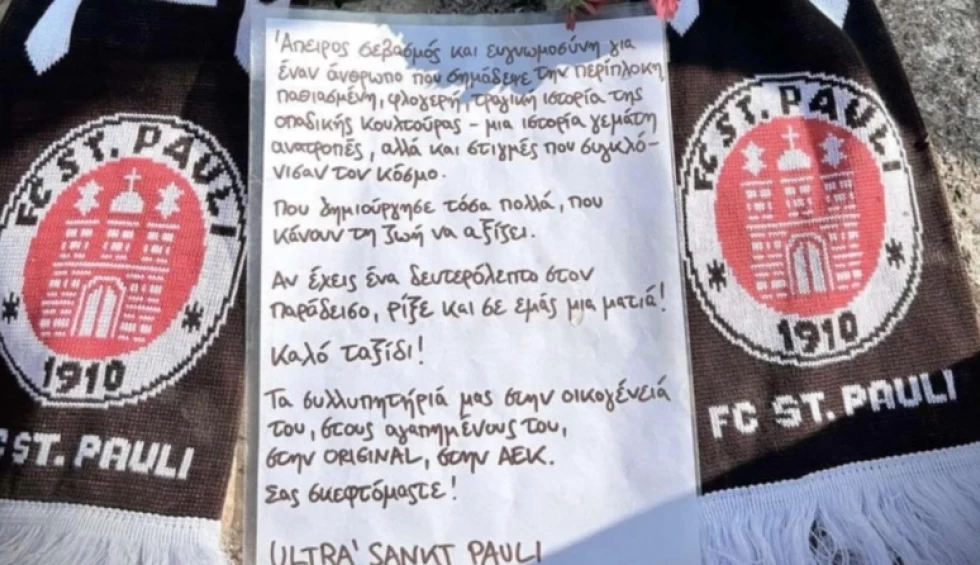 Άπειρος σεβασμός και ευγνωμοσύνη για
έναν άνθρωπο που σημάδεψε την περίπλοκη,
παθιασμένη, φλογερή, τραγική ιστορία της
οπαδικής κουλτούρας – μια ιστορία γεμάτη
ανατροπές, αλλά και στιγμές που συγκλό-
νισαν τον κόσμο.
Που δημιούργησε τόσα πολλά, που
κάνουν τη ζωή να αξίζει.
Αν έχεις ένα δευτερόλεπτο στον
παράδεισο, ρίξε και σε εμάς μια ματιά!
Καλό ταξίδι!
Τα συλλυπητήριά μας στην οικογένειά
του, στους αγαπημένους του,
στην ORIGINAL, στην ΑΕΚ.
Σας σκεφτόμαστε!
ULTRA' SANKT PAULI
FC ST. PAULI
1910
C ST. PAULI
FC ST. PAULI
1910
FC ST. PAULI